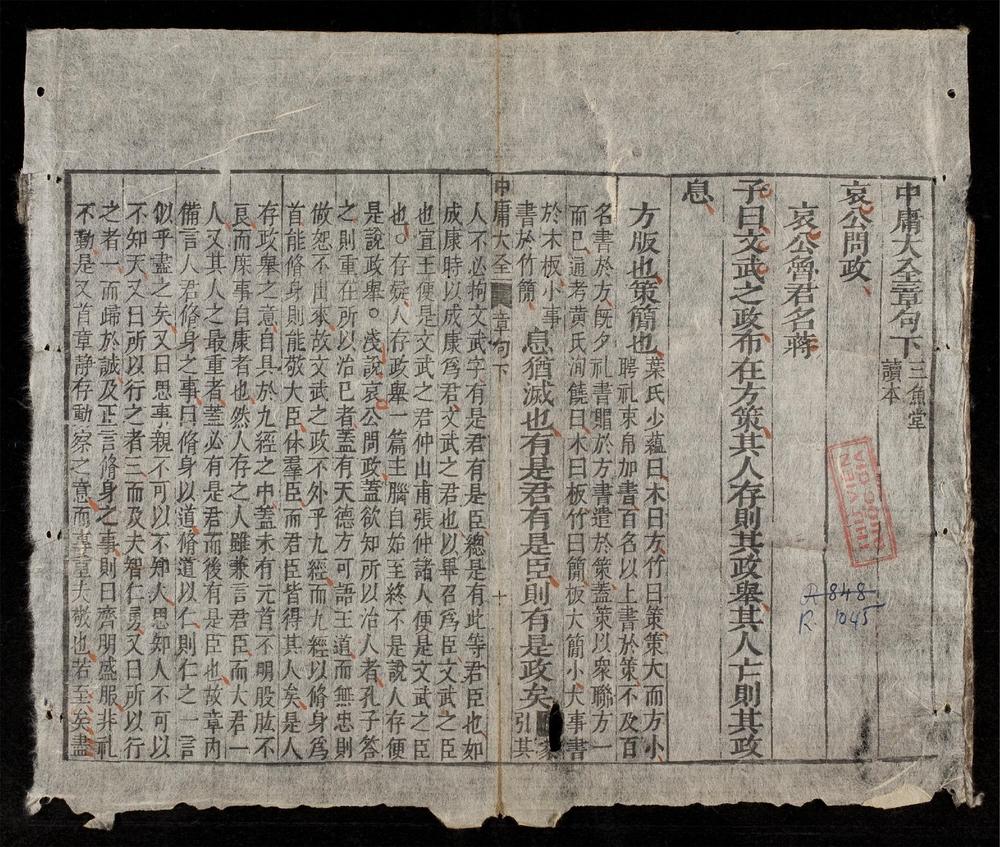 中庸大全章句下 三魚堂讀本
哀公問政
哀公魯君名蔣
子曰文武之政布在方策其人存則其政舉其人亡則其政
息
方版也策簡也 葉氏少蘊曰木曰方竹曰策策大而方小
聘禮束帛加書百名以上書於策不及百
名書於方既夕禮書賵於方書遣於策蓋策以衆聯方一
而已通考黃氏洵饒曰木曰板竹曰簡板大簡小大事書
於木板小事
書於竹簡 息猶滅也有是君有是臣則有是政矣
引其
中庸大全 章句下 十
人不必拘文武字有是君有是臣總是有此等君臣也如
成康時以成康為君文武之君也以畢召爲臣文武之臣
也宜王便是文武之君仲山甫張仲諸人便是文武之臣
也。存疑人存政舉一篇主腦自始至終不是說人存便
是說政舉。淺說哀公問政蓋欲知所以治人者孔子答
之則重在所以治己者蓋有天德方可語王道而無忠則
做恕不出來故文武之政不外乎九經而九經以脩身爲
首能脩身則能敬大臣體羣臣而君臣皆得其人矣是人
存政舉之意自具於九經之中蓋未有元首不明股肱不
良而庶事自康者也然人存之人雖兼言君臣而大君一
人又其人之最重者蓋必有是君而後有是臣也故章內
備言人君脩身之事曰脩身以道脩道以仁則仁之一言
似乎盡之矣又曰思事親不可以不知人思知人不可以
不知天又曰所以行之者三而及夫智仁勇又曰所以行
之者一而歸於誠及正言脩身之事則曰齊明盛服非禮
不動是又首章靜存動察之意而事夫敬也若至矣盡
A 848
R 1045